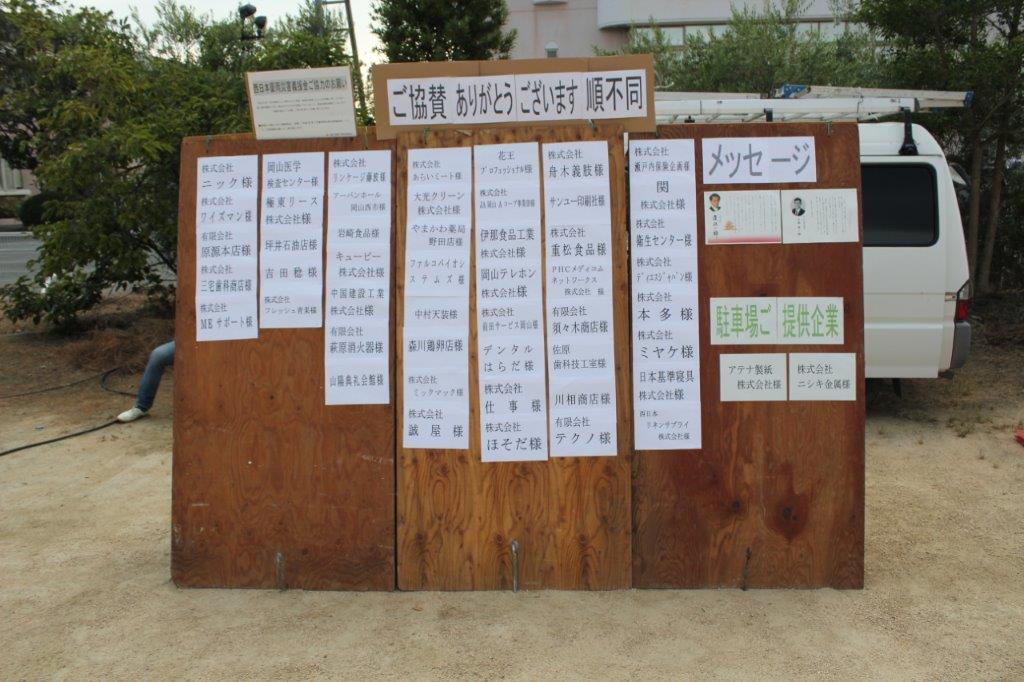 西日本豪雨災害義援金ご協力のお願い
ご協賛 ありがとう ございます 順不同
株式会社
ニック様
株式会社
ワイズマン様
有限会社
原源本店様
株式会社
三宅歯科商店様
株式会社
MEサポート様
岡山医学
検査センター様
極東リース
株式会社様
坪井石油店様
吉田稔様
株式会社
フレッシュ青果様
株式会社
リンケージ藤枝様
アーバンホール
岡山西市様
岩崎食品様
キューピー
株式会社様
中国建設工業
株式会社様
有限会社
萩原消火器様
山陽典礼会館様
株式会社
あらいミート様
大光クリーン
株式会社様
やまかわ薬局
野田店様
ファルコバイオシ
ステムズ様
中村天装様
森川鶏卵店様
株式会社
ミックマック様
株式会社
誠屋様
花王
プロフェッショナル様
株式会社
JA岡山Aコープ事業部様
伊那食品工業
株式会社様
岡山テレホン
株式会社様
株式会社
前田サービス岡山様
デンタル
はらだ様
株式会社
仕事様
株式会社
ほそだ様
株式会社
舟木義肢様
サンユー印刷社様
株式会社
重松食品様
PHCメディコム
ネットワークス
株式会社 様
有限会社
須々木商店様
佐原
歯科技工室様
川相商店様
有限会社
テクノ様
株式会社
瀬戸内保険企画様
関
株式会社様
株式会社
衛生センター様
株式会社
ディエスジャパン様
株式会社
本多様
株式会社
ミヤケ様
日本基準寝具
株式会社様
西日本
リネンサプライ
株式会社様
メッセージ
駐車場ご提供企業
アテナ製紙
株式会社様
株式会社
ニシキ金属様